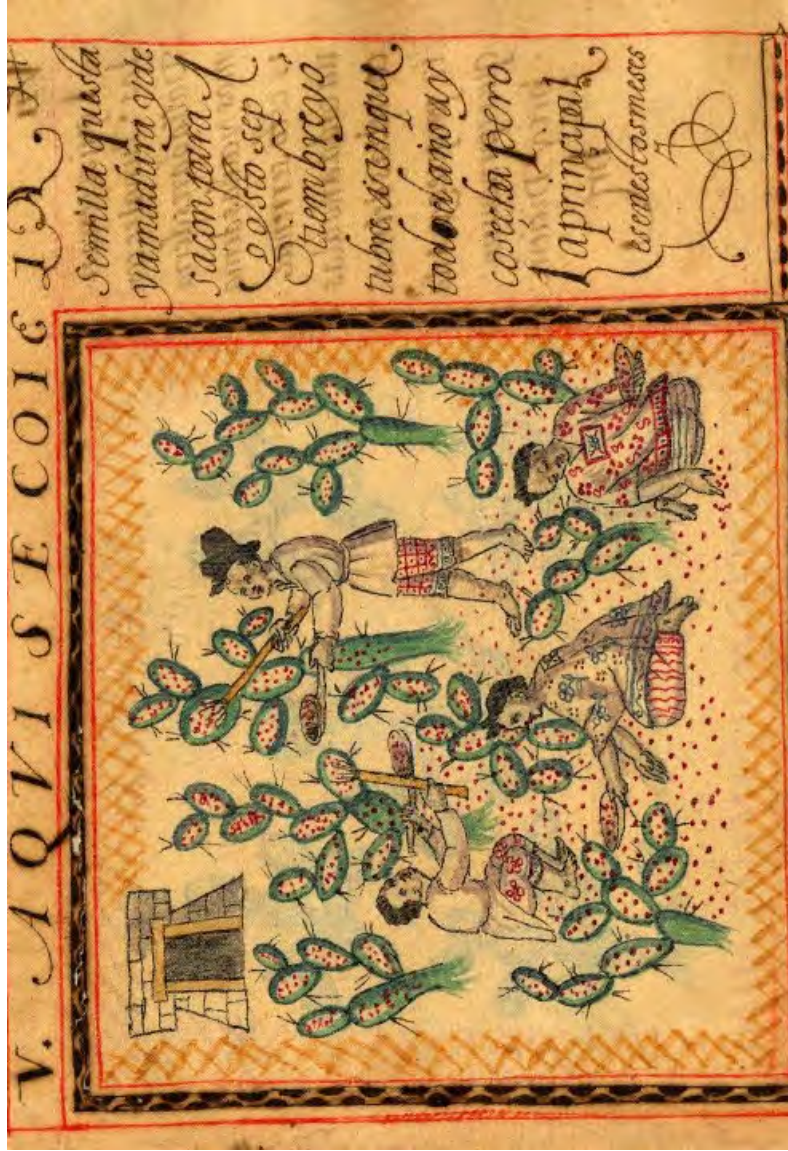 V. AQVI SE COIE LA
Semilla questa
yamadura yde
sacon para A
gosto sep
tiembreyo
tubre aunque
todo el año ay
cosecha pero
laprincipal
esendestosmeses